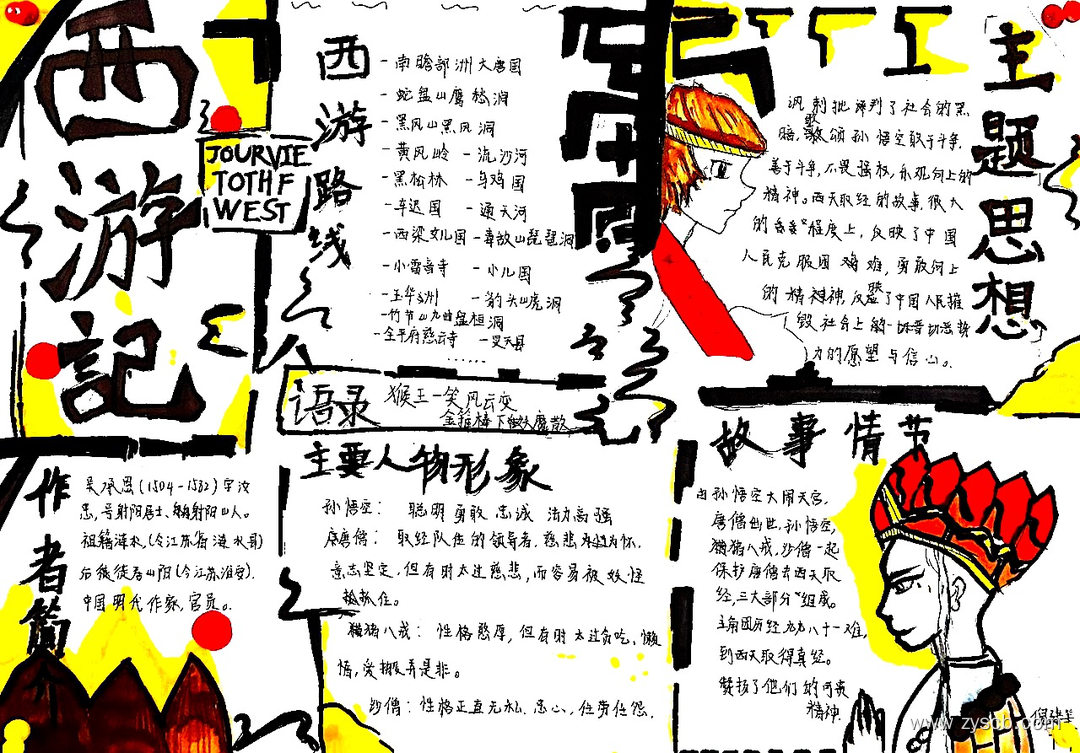 西游記
JOURVIE
TOTHF
WEST
西游路线
-南瞻部洲大唐国
-蛇盘山鹰愁涧
-黑风山黑风洞
-黄风岭 -流沙河
-黑松林 -乌鸡国
-车迟国 -通天河
-西梁女儿国 -毒敌山琵琶洞
-小雷音寺 -小儿国
-玉华州 -豹头山虎洞
-竹节山九曲盘桓洞
-金平府慈云寺 -天竺县
......
语录
猴王一笑风云变
金箍棒下妖魔散
主题思想
讽刺批评判了社会的黑
暗,歌颂孙悟空敢于斗争,
善于斗争,不畏强权,乐观向上的
精神。西天取经的故事很大
程度上,反映了中国
人民克服困难,勇敢向上
的精神,反映了中国人民摧
毁社会上的一切恶势
力的愿望与信心。
作者简
吴承恩(1504-1582)字汝
忠,号射阳居士、射阳山人。
祖籍涟水,(今江苏省涟水县)
后徙徒居山阳(今江苏淮安).
中国明代作家,官员。
主要人物形象
孙悟空: 聪明勇敢 忠诚 法力高强
唐僧: 取经队伍的领导者,慈悲为怀,
意志坚定,但有时太过慈悲,而容易被妖怪
抓住。
猪八戒: 性格憨厚,但有时太过贪吃,懒
惰,爱搬弄是非。
沙僧: 性格正直无私、忠心,任劳任怨.
故事情节
由孙悟空大闹天宫,
唐僧出世,孙悟空,
猪八戒,沙僧一起
保护唐僧去西天取
经,三大部分组成。
主角团历经九九八十一难,
到西天取得真经。
赞扬了他们的可贵
精神.
www.zyshb.com